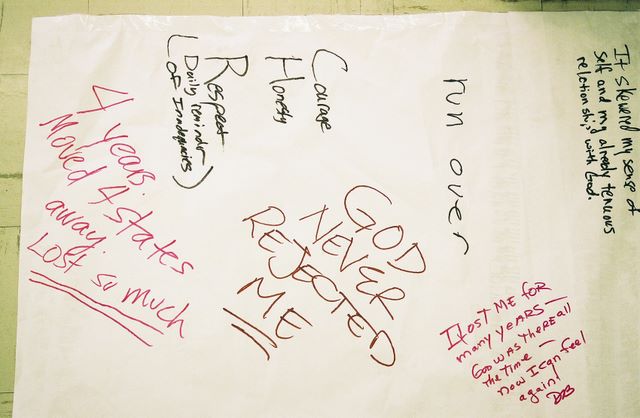 It skewered my sense of
self and my already tenuous
relationships with God.
run over
Courage
Honesty
Respect
(Daily remindr
of Inadequacies)
4 years.
Moved 4 states
away.
Lost so much
GOD
NEVER
REJECTED
ME
I Lost ME FOR
many years —
GOD WAS there all
the time —
now I can feel
again!